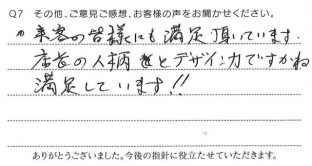 Q7 その他、ご意見ご感想、お客様の声をお聞かせください。
来客の皆様にも満足頂いています.
店長の人柄とデザイン力ですかね
満足しています!!
ありがとうございました。今後の指針に役立たせていただきます。